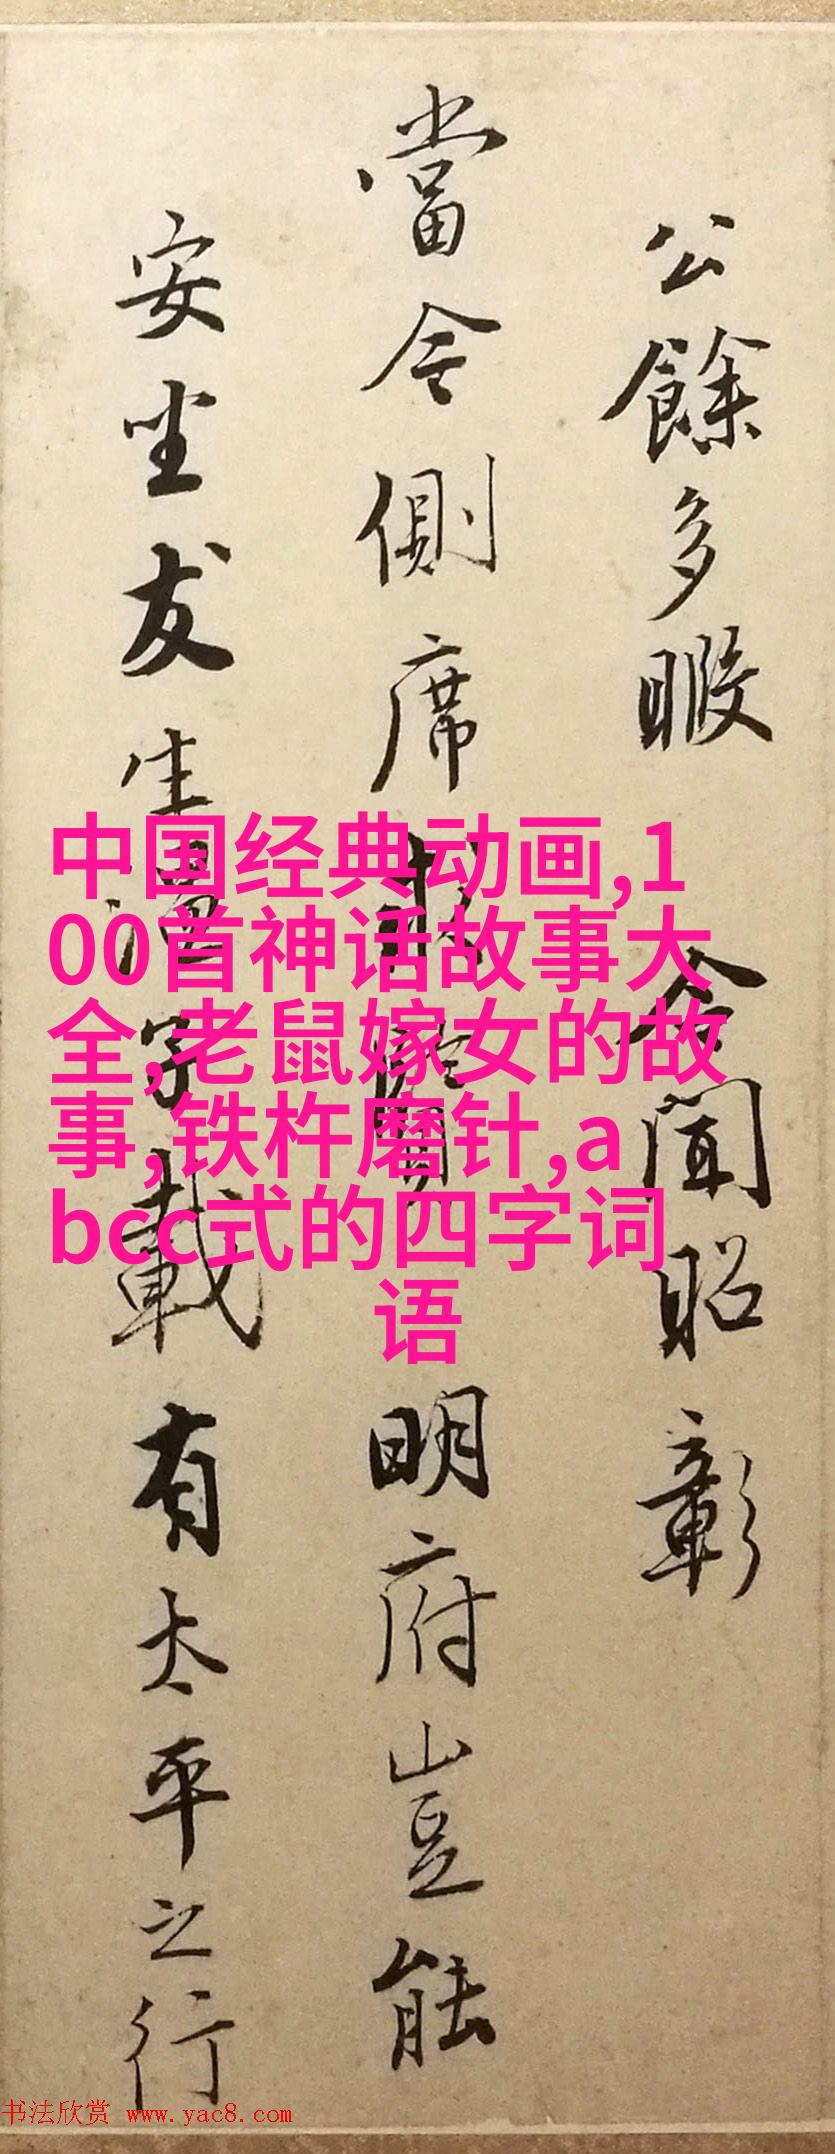 公餘多暇 令聞昭彰
當今側席求賢明府豈能
安坐友生潘字載有太平之行
中国经典动画,1
00首神话故事大
全,老鼠嫁女的故
事,铁杵磨针,a
bcc式的四字词
语
书法欣赏 www.yac8.com